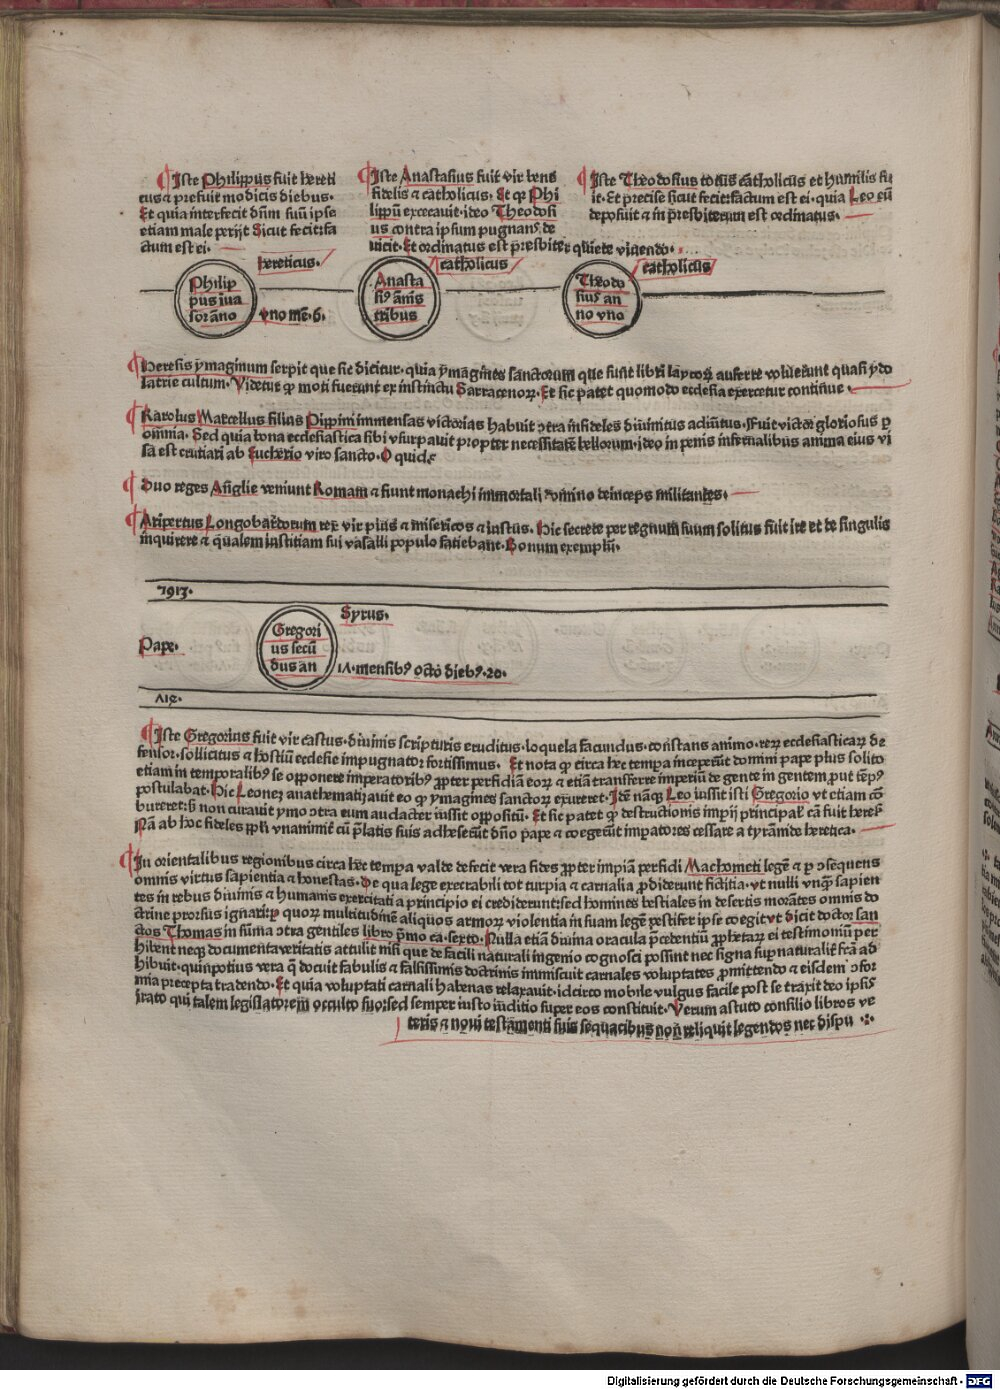 Iste Philippus fuit hereti
cus ⁊ prefuit modicis diebus.
Et quia interfecit dn̄m suū ipse
etiam male perijt Sicut fecit: fa
ctum est ei.
Iste Anastasius fuit vir bene
fidelis ⁊ catholicus. Et qꝫ Phi
lippū excecauit. ideo Theodosi
us contra ipsum pugnans de
uicit. Et ordinatus est presbiter quiete viuendo.
Iste Theodosius totus catholicus et humilis fu
it. Et precise sicut fecit: factum est ei. quia Leo eū
deposuit ⁊ in presbiterum est ordinatus.
hereticus.
Philip
pus iua
sor āno
vno mē. 6.
catholicus
Anasta
siꝰ ānis
tribus
catholicus
Theodo
sius an
no vno
Heresis ymaginum serpit que sic dicitur. quia ymagines sanctorum que sunt libri laycoꝝ auferre voluerunt quasi ydo
latrie cultum. Videtur qꝫ moti fuerunt ex instinctu Sarracenoꝝ. Et sic patet quomodo ecclesia exercetur continue.
Karolus Marcellus filius Pippini immensas victorias habuit ↄtra infideles diuinitus adiutus. Fuit victor gloriosus ꝑ
omnia. Sed quia bona ecclesiastica sibi vsurpauit propter necessitatē bellorum. ideo in penis infernalibus anima eius vi
sa est cruciari ab Eucherio viro sancto. O quid ꝛc
Duo reges Anglie veniunt Romam ⁊ fiunt monachi immortali domino deinceps militantes.
Aripertus Longobardorum rex vir pius ⁊ misericors ⁊ iustus. Hic secrete per regnum suum solitus fuit ire et de singulis
inquirere ⁊ qualem iustitiam sui vasalli populo faciebant. Bonum exemplū.
5913.
Pape.
Gregori
us secū
dus an
Syrus.
17. mensibꝰ octo diebꝰ. 20.
715.
Iste Gregorius fuit vir castus. diuinis scripturis eruditus. loquela facundus. constans animo. reꝝ ecclesiasticaꝝ de
fensor. sollicitus ⁊ hostiū ecclesie impugnator fortissimus. Et nota qꝫ circa hec tempa inceperūt domini pape plus solito
etiam in temporalibꝰ se opponere imperatoribꝰ ꝓpter perfidiam eoꝝ ⁊ etiā transferre imperiū de gente in gentem. put tempꝰ
postulabat. Hic Leonē anathematizauit eo qꝫ ymagines sanctoꝝ exureret. Idē nāqꝫ Leo iussit isti Gregorio vt etiam cō
bureret: sꝫ non curauit ymo ↄtra eum audacter iussit oppositū. Et sic patet qꝫ destructionis imperij principal' cā fuit heres'.
Nā ab hoc fideles ppli vnanimit' cū p̄latis suis adheserūt dn̄o pape ⁊ coegerūt impatores cessare a tyrāmide heretica.
In orientalibus regionibus circa hec tempa valde defecit vera fides ꝓpter impiā perfidi Machometi legē ⁊ ꝑ ↄsequens
omnis virtus sapientia ⁊ honestas. De qua lege execrabili tot turpia ⁊ carnalia ꝓdiderunt ficticia. vt nulli vnqꝫ sapien
tes in rebus diuinis ⁊ humanis exercitati a principio ei crediderunt: sed homines bestiales in desertis morātes omnis do
ctrine prorsus ignari: ꝑ quoꝝ multitudinē aliquos armoꝝ violentia in suam legē pestifer ipse coegit vt dicit doctor san
ctus Thomas in sūma ↄtra gentiles libro p̄mo ca. sexto. Nulla etiā diuina oracula p̄cedentiū ꝓphetaꝝ ei testimoniū per
hibent neqꝫ documenta veritatis attulit nisi que de facili naturali ingenio cognosci possint nec signa supnaturalit' fcā ad
hibuit. quinpotius vera q̄ docuit fabulis ⁊ falsissimis doctrinis immiscuit carnales voluptates ꝓmittendo ⁊ eisdem ↄfor
mia precepta tradendo. Et quia voluptati carnali habenas relaxauit. idcirco mobile vulgus facile post se traxit deo ipsis
irato qui talem legislatorem occulto suo: sed semper iusto iudicio super eos constituit. Verum astuto consilio libros ve
teris ⁊ noui testamenti suis sequacibus non reliquit legendos nec dispu
Digitalisierung gefördert durch die Deutsche Forschungsgemeinschaft - DFG